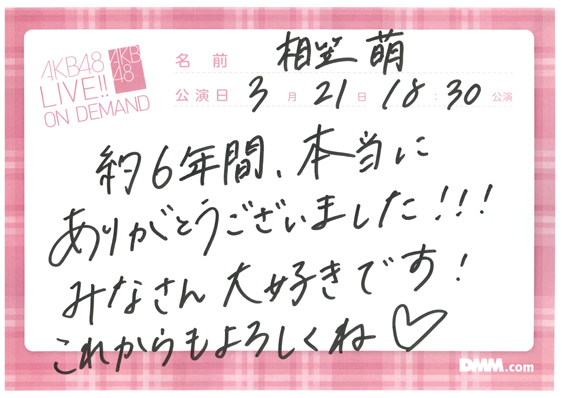 AKB48
LIVE!!
ON DEMAND
AKB
48
名前 相笠 萌
公演日 3月21日 18:30公演
約6年間、本当に
ありがとうございました!!!
みなさん大好きです!
これからもよろしくね♡
DMM.com